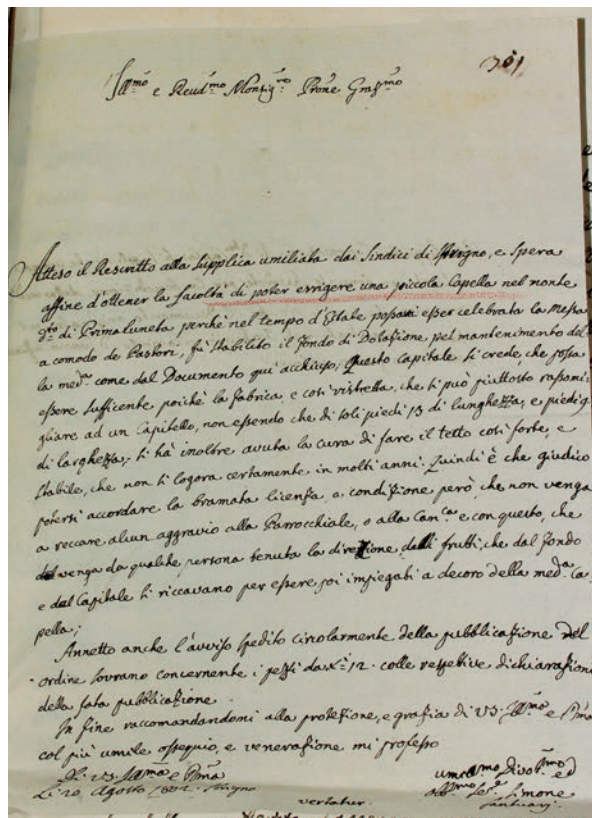 301
Ill:mo e Reud:mo Monsig:re Prone Graz:mo
Atteso il Rescritto alla supplica umiliata dai Sindici di Strigno, e Spera
affine d'ottener la facoltà di poter errigere una piccola Capella nel monte
d:to di Primaluneta perchè nel tempo d'Estate possavi esser celebrata la Messa
a comodo de Pastori, fù stabilito il fondo di Dotazione pel mantenimento del
la med:a come dal Documento qui acchiuso; Questo Capitale si crede, che possa
essere sufficente poichè la fabrica, e così ristretta, che si può piuttosto rassomi
gliare ad un Capitello, non essendo che di soli piedi 13 di lunghezza, e piedi 9.
di larghezza, si hà inoltre avuta la cura di fare il tetto così forte, e
stabile, che non si logora certamente in molti anni. Quindi è che giudico
potersi accordare la bramata licenza, a condizione però, che non venga
a reccare alcun aggravio alla Parrocchiale, o alla Can:ca e con questo, che
venga da qualche persona tenuta la direzione delli frutti, che dal fondo
e dal Capitale si riccavano per essere poi impiegati a decoro della med:a Ca
pella;
Annetto anche l'avviso spedito circolarmente della pubblicazione del
ordine sovrano concernente i pezzi da X:i 12. colle respettive dichiarazioni
della fata pubblicazione.
In fine raccomandandomi alla protezione, e grazia di VS. Ill:mo e R:ma
col più umile ossequio, e venerazione mi professo
Di VS. Ill:ma e R:ma
Li 20 Agosto 1802. Strigno
umil:mo Divot:mo ed
obb:mo Ser:e Simone
vertatur.